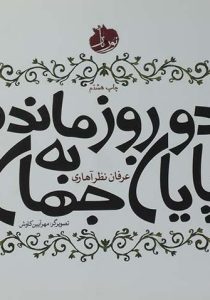 چاپ هشتم
دو روز مانده
به
پایان جهان
عرفان نظرآهاری
تصویرگر: مهرآیین کاوش